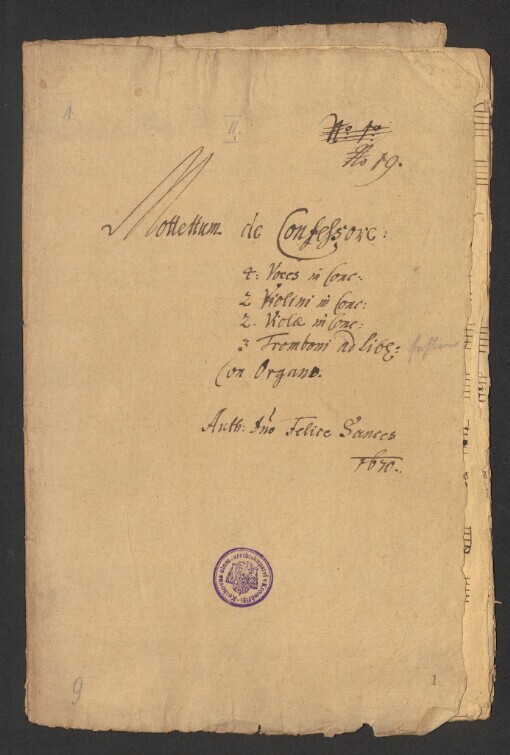 1
II.
No. 1o
No 19.
Mottettum de Confessore:
4: Voces in Conc:
2 Violini in Conc:
2. Violæ in Conc:
3 Tromboni ad Lib:
Con Organo.
Auth: Dno Felice Sances
1670.
9
1